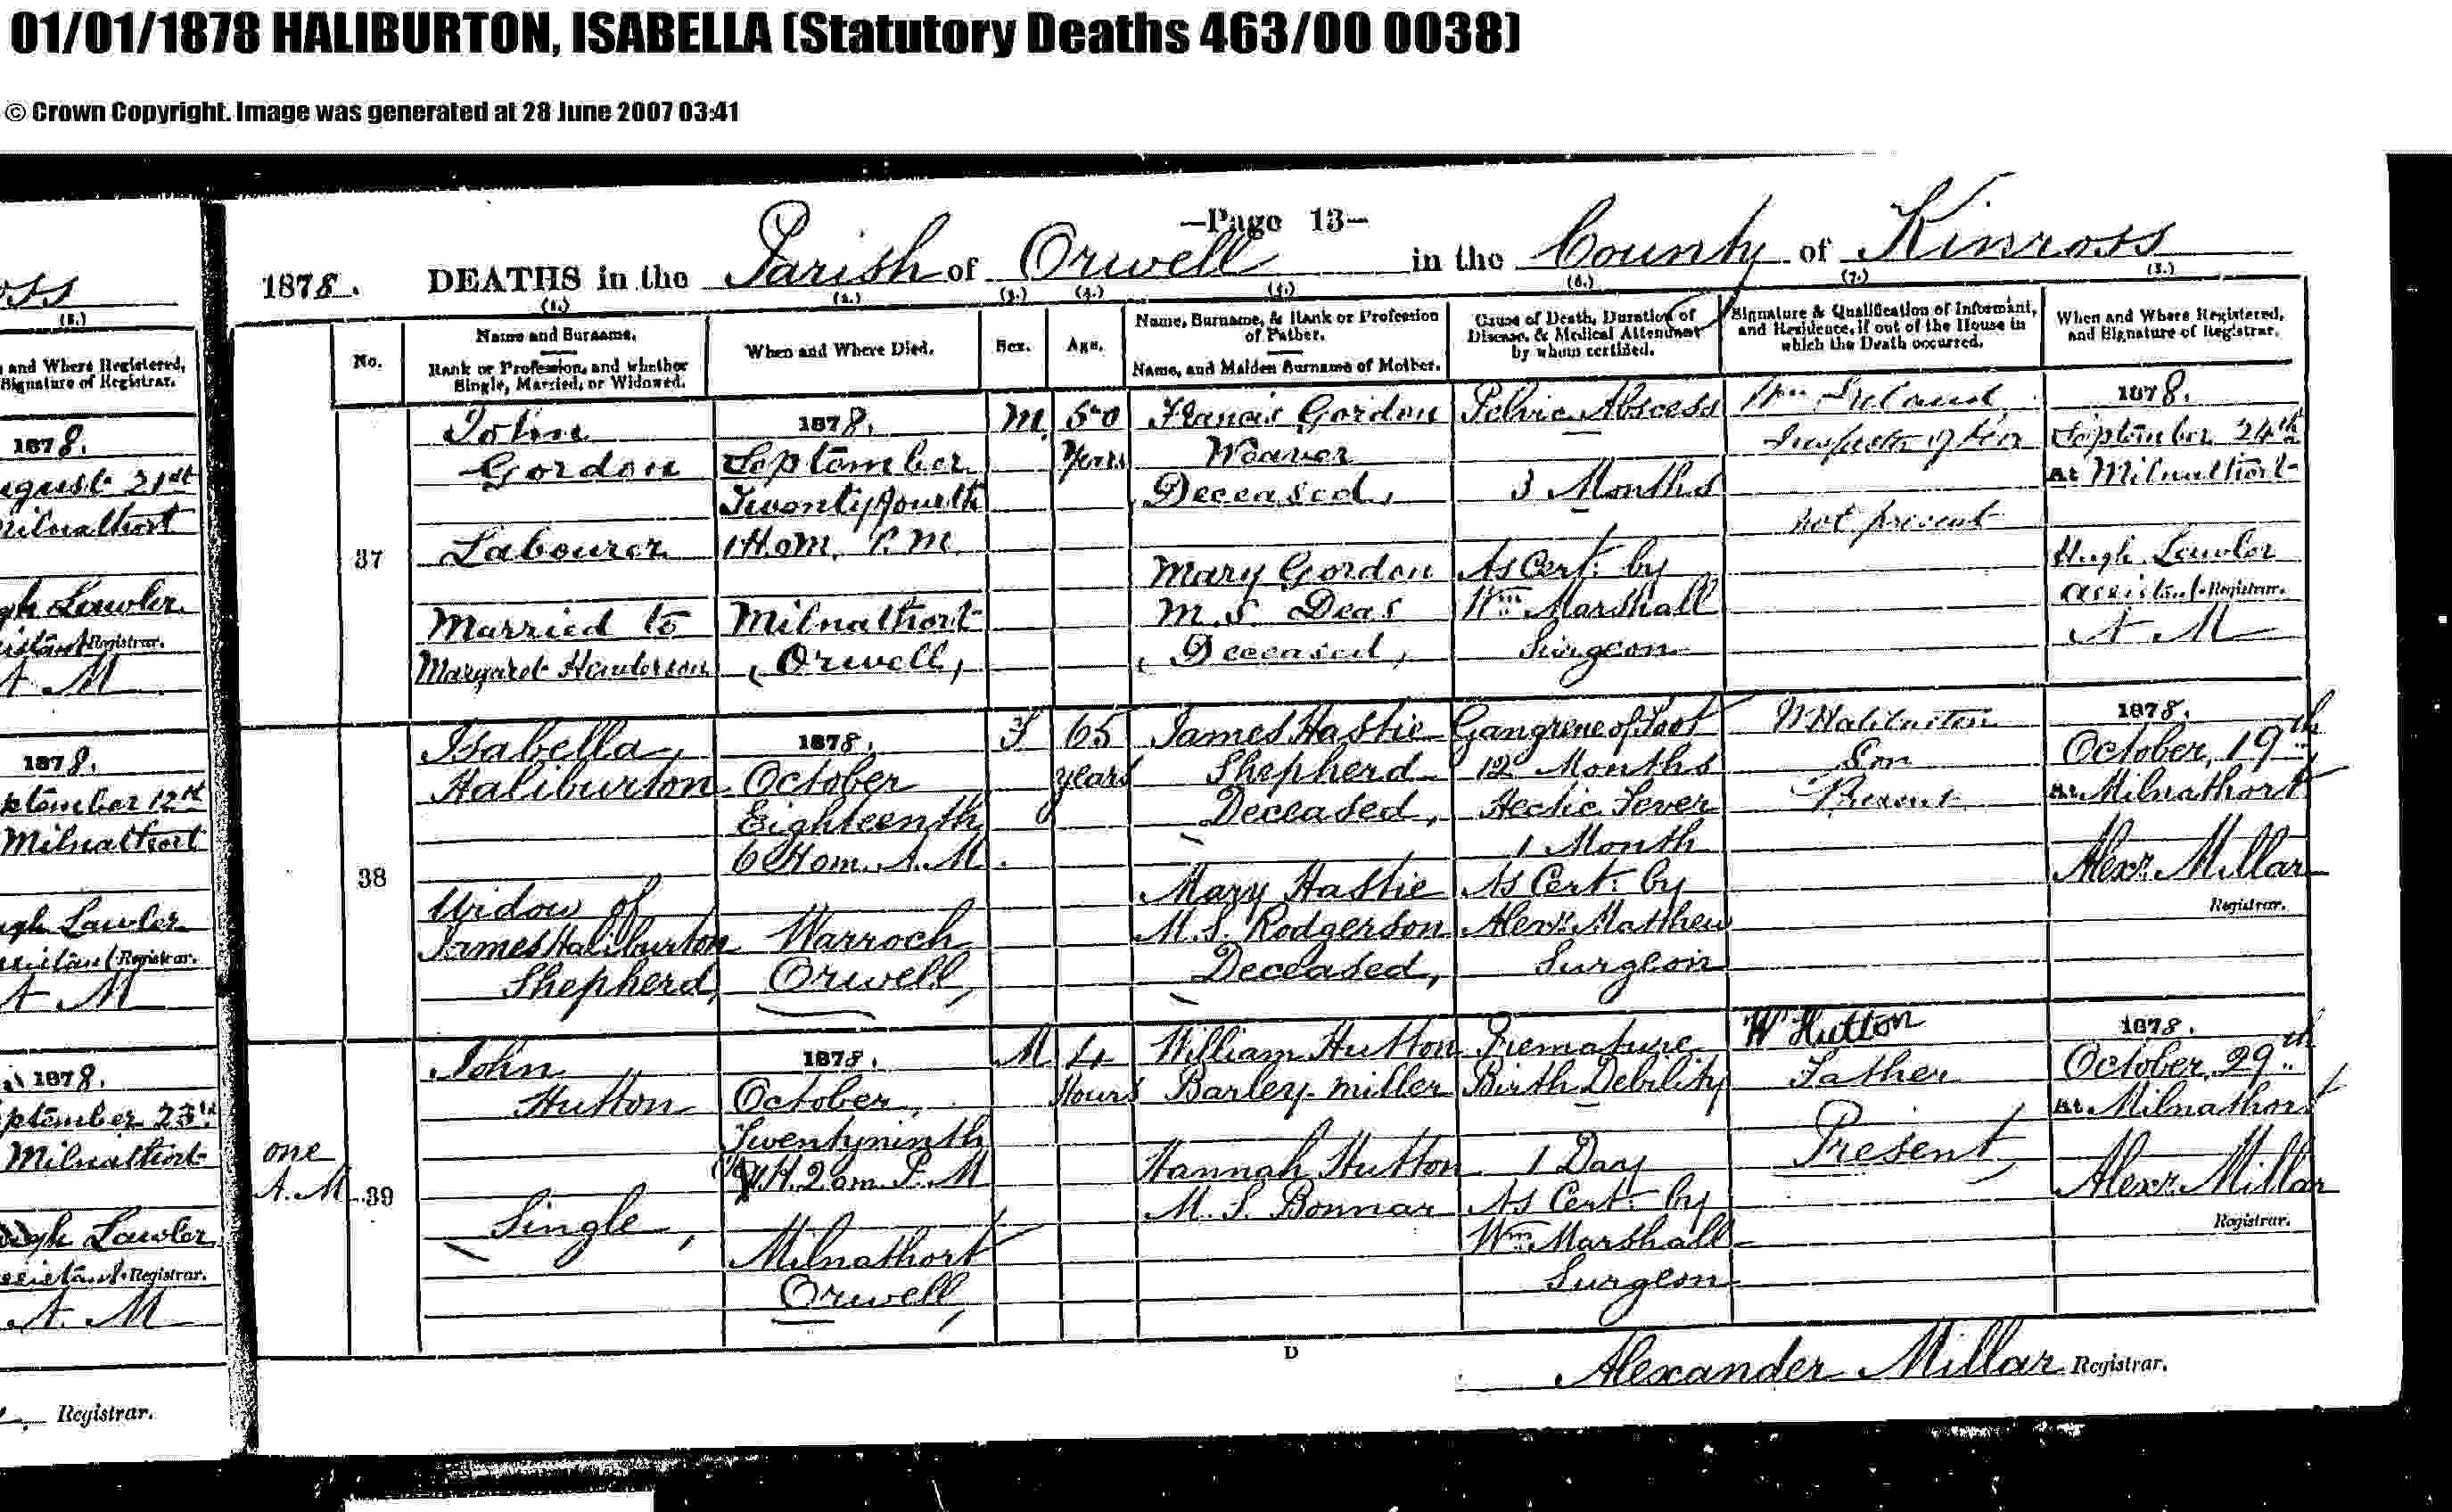 01/01/1878 HALIBURTON, ISABELLA (Statutory Deaths 463/00 0038)
© Crown Copyright. Image was generated at 28 June 2007 03:41
—Page 13—
1878. DEATHS in the Parish of Orwell in the County of Kinross
(1.) (2.) (3.) (4.) (5.) (6.) (7.) (8.)
No.
Name and Surname.
Rank or Profession, and whether
Single, Married, or Widowed.
When and Where Died.
Sex.
Age.
Name, Surname, & Rank or Profession
of Father.
Name, and Maiden Surname of Mother.
Cause of Death, Duration of
Disease, & Medical Attendant
by whom certified.
Signature & Qualification of Informant,
and Residence, if out of the House in
which the Death occurred.
When and Where Registered,
and Signature of Registrar.
37
John
Gordon
Labourer
Married to
Margaret Henderson
1878.
September
Twenty fourth
1 H 0 m. P.M.
Milnathort
(Orwell)
M.
50
Years
Francis Gordon
Weaver
Deceased,
Mary Gordon
M.S. Deas
(Deceased)
Pelvic Abscess
3 Months
As Cert. by
Wm. Marshall
Surgeon
Wm
Inspector of
not present
1878.
September 24th
At Milnathort
Hugh Lawler
assistant Registrar.
A M
38
Isabella
Haliburton
Widow of
James Haliburton
Shepherd,
1878.
October
Eighteenth
6 H 0 m. A.M.
Warroch
Orwell,
F
65
years
James Hastie
Shepherd
Deceased,
Mary Hastie
M.S. Rodgerson
Deceased,
Gangrene of Foot
12 Months
Hectic Fever
1 Month
As Cert. by
Alexr. Matthew
Surgeon
Haliburton
Son
Present
1878.
October, 19th
At Milnathort
Alexr. Millar
Registrar.
one
A.M
39
John
Hutton
Single,
1878.
October,
Twentyninth
H. 2 0m. P.M
Milnathort
Orwell,
M
4
Hours
William Hutton
Barley-miller
Hannah Hutton
M.S. Bonnar
Premature
Birth Debility
1 Day
As Cert. by
Wm. Marshall
Surgeon
W Hutton
Father
Present,
1878.
October, 29th
At Milnathort
Alexr. Millar
Registrar.
D
Alexander Millar Registrar.
oss
(8.)
and Where Registered,
Signature of Registrar.
1878.
ugust 21st
Milnathort
gh Lawler
istant Registrar.
A M
1878.
ptember 12th
Milnathort
ugh Lawler
ssistant Registrar.
A M
1878.
ptember 23rd
Milnathort
ugh Lawler
ssistant Registrar.
A. M
Registrar.